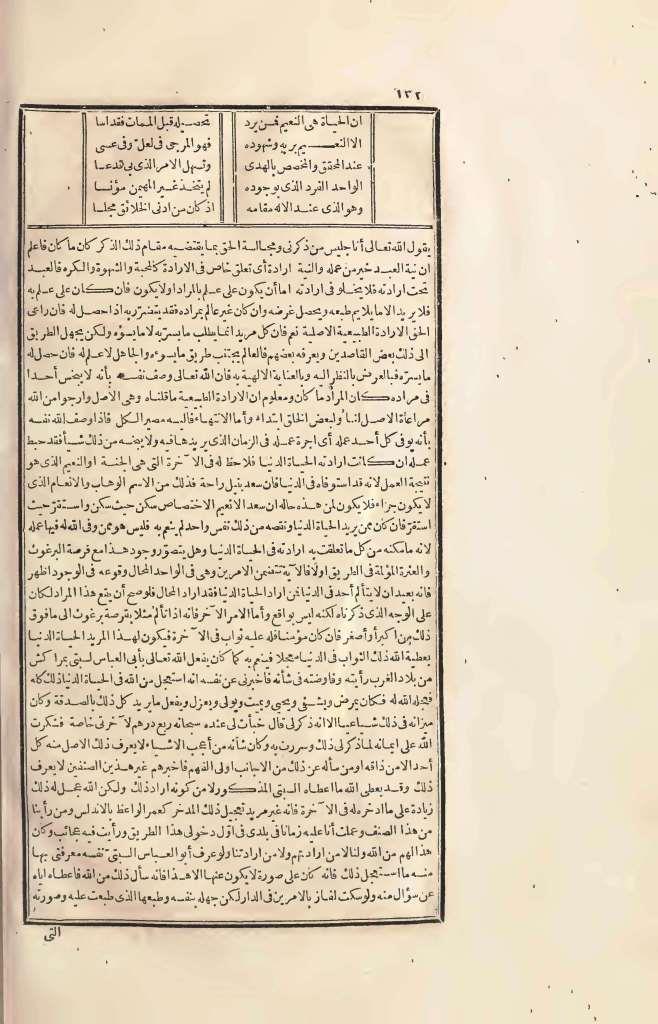 ١٣٢
ان الحياة هي النعيم فمن يرد تحصيله قبل الممات فقد اسا
الا النعيم بربه وشهوده فهو المرجى في لعل وفي عسى
عند المحقق والمخصص بالهدى وتهل الامر الذي
الواحد الفرد الذي بوجوده لم يتخذ غير المهيمن مؤنسا
وهو الذي عند الاله مقامه اذ كان من ادنى الخلائق مجلسا
يقول الله تعالى أنا جليس من ذكرني ومجالسة الحق بما يقتضيه مقام ذلك الذكر كان ما كان فاعلم
ان نية العبد خير من عمله والنية ارادة أي تعلق خاص في الارادة كالمحبة والشهوة والكره فالعبد
تحت ارادته فلا يخلو في ارادته اما أن يكون على علم بالمراد أولا يكون فان كان على علم به
فلا يريد الا ما يلايم طبعه ويحصل غرضه وان كان غير عالم بمراده فقد يتضرر به اذا حصل له فان راعى
الحق الارادة الطبيعية الاصلية نعم فان كل مريد انما يطلب ما يسره لا ما يسوءه ولكن يجهل الطريق
الى ذلك بعض القاصدين ويعرفه بعضهم فالعالم يجتنب طريق ما يسوءه والجاهل لا علم له فان حصل له
ما يسره فبالعرض بالنظر اليه وبالعناية الالهية به فان الله تعالى وصف نفسه بأنه لا يبخس أحدا
في مراده كان المراد ما كان ومعلوم ان الارادة الطبيعية ما قلناه وهي الاصل وارجو من الله
مراعاة الاصل لنا ولبعض الخلق ابتداء وأما الانتهاء فاليه مصير الكل فاذا وصف الله نفسه
بأنه يوفى كل أحد عمله أي اجرة عمله في الزمان الذي يريدها فيه ولا يبخسه من ذلك شيأ فقد حبط
عمله ان كانت ارادته الحياة الدنيا فلا حظ له في الآخرة التي هي الجنة او النعيم الذي هو
نتيجة العمل لانه قد استوفاه في الدنيا فان سعد بنيل راحة فذلك من الاسم الوهاب والانعام الذي
لا يكون جزاء فلا يكون لمن هذه حاله ان سعد الا نعيم الاختصاص سكن حيث سكن واستقر حيث
استقر فان كان ممن يريد الحياة الدنيا ونقصه من ذلك نفس واحد لم ينعم به فليس هو ممن وفى الله له فيها عمله
لانه ما مكنه من كل ما تعلقت به ارادته في الحياة الدنيا وهل يتصور وجود هذا مع قرصة البرغوث
والعثرة المؤلمة في الطريق أولا فالآية تتضمن الامرين وهي في الواحد المحال وقوعه في الوجود أظهر
فانه بعيد ان لا يتألم أحد في الدنيا فمن اراد الحياة الدنيا فقد اراد المحال فلو صح أن يقع هذا المراد لكان
على الوجه الذي ذكرناه لكنه ليس بواقع وأما الامر الآخر فانه اذا تألم مثلا بقرصة برغوث الى ما فوق
ذلك من اكبر أو أصغر فان كان مؤمنا فله عليه ثواب في الآخرة فيكون لهذا المريد الحياة الدنيا
يعطيه الله ذلك الثواب في الدنيا معجلا فينعم به كما كان يفعل الله تعالى بأبي العباس السبتي بمراكش
من بلاد الغرب رأيته وفاوضته في شأنه فأخبرني عن نفسه انه استعجل من الله في الحياة الدنيا ذلك كله
فعجله الله له فكان يمرض ويشفي ويحيي ويميت ويولي ويعزل ويفعل ما يريد كل ذلك بالصدقة وكان
ميزانه في ذلك سباعيا الا انه ذكر لي قال خبأت لي عنده سبحانه ربع درهم لآخرتي خاصة فشكرت
الله على ايمانه لما ذكر لي ذلك وسررت به وكان شأنه من أعجب الاشياء لا يعرف ذلك الاصل منه كل
أحد الا من ذاقه او من سأله عن ذلك من الاجانب أولى الفهم فأخبرهم غير هذين الصنفين لا يعرف
ذلك وقد يعطي الله ما اعطاه السبتي المذكور لا من كونه اراد ذلك ولكن الله عجل له ذلك
زيادة على ما ادخره له في الآخرة فانه غير مريد تعجيل ذلك المدخر كعمر الواعظ بالاندلس ومن رأينا
من هذا الصنف وعملت أنا عليه زمانا في بلدي في اول دخولي هذا الطريق ورأيت فيه عجائب وكان
هذا لهم من الله ولنا لا من ارادتهم ولا من ارادتنا ولو عرف أبو العباس السبتي نفسه معرفتي بها
منه ما استعجل ذلك فانه كان على صورة لا يكون عنها الا هذا فانه سأل ذلك من الله فاعطاه اياه
عن سؤال منه ولو سكت لفاز بالامرين في الدارلكن جهله بنفسه وطبعها الذي طبعت عليه وصورته
التي